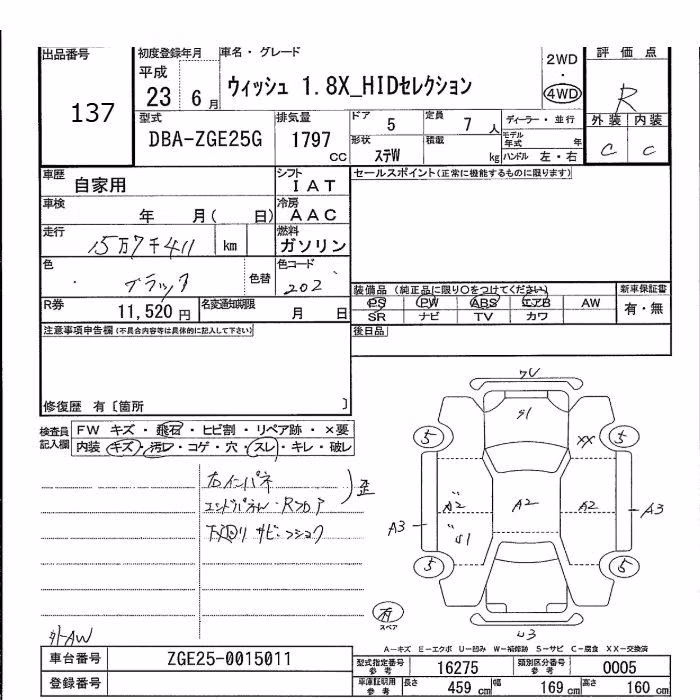 出品番号
137
初度登録年月
平成
23 6月
車名・グレード
ウィッシュ 1.8X_HIDセレクション
2WD
・
4WD
評価点
R
型式
DBA-ZGE25G
排気量
1797
CC
ドア 5
定員 7 人
形状 ステW
積載 kg
ディーラー・並行
モデル年式 年
ハンドル 左・右
外装 内装
C C
車歴
自家用
シフト
IAT
セールスポイント(正常に機能するものに限ります)
車検
年 月( 日)
冷房
AAC
走行
15万7千411 km
燃料
ガソリン
色
ブラック
色替
色コード
202
R券
11,520円
名変通知期限
月 日
装備品(純正品に限り○をつけてください)
PS PW ABS エアB AW
SR ナビ TV カワ
新車保証書
有・無
後日品
注意事項申告欄(不具合内容等は具体的に記入して下さい)
修復歴 有〔箇所 〕
検査員記入欄
FW キズ・飛石・ヒビ割・リペア跡・×要
内装 キズ・汚レ・コゲ・穴・スレ・キレ・破レ
右インパネ
エンドパネル・Rフロア
歪
下廻リ サビ・コショク
外AW
S1
XX
5 5
A2 A2 A2
S1
A3 A3
5 5
有
スペア
W3
A-キズ E-エクボ U-凹み W-補修跡 S-サビ C-腐食 XX-交換済
車台番号
ZGE25-0015011
登録番号
型式指定番号 参考
16275
類別区分番号 参考
0005
車庫証明用 参考
長さ 459 cm
幅 169 cm
高さ 160 cm